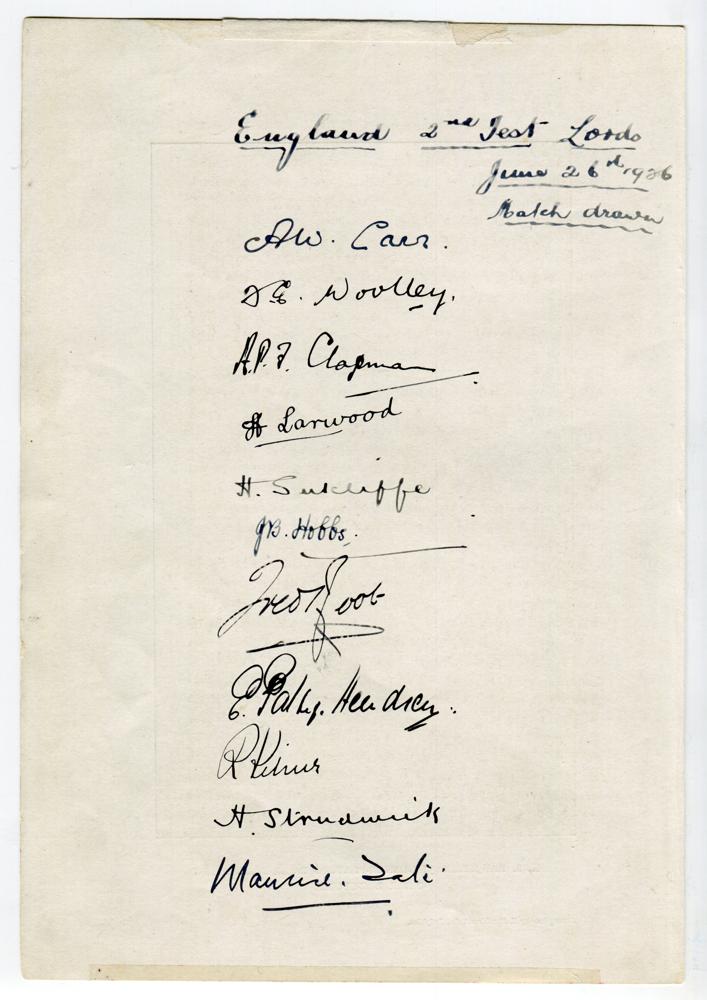 England 2nd Test Lords
June 26th 1926
Match drawn
A.W. Carr.
F.E. Woolley.
A.P.F. Chapman
H Larwood
H. Sutcliffe
J.B. Hobbs.
Fred Root
E. Patsy. Hendren.
R Kilner
H. Strudwick
Maurice. Tate.